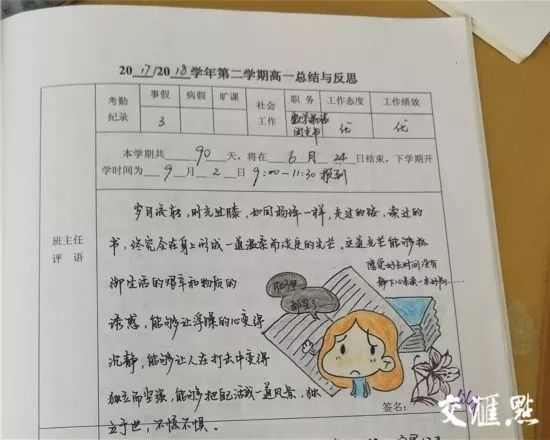 2017/2018学年第二学期高一总结与反思
考勤纪录 事假 病假 旷课 社会工作 职务 工作态度 工作绩效
3 数学课代 团支书 优 优
本学期共 90 天，将在 6 月 24 日结束，下学期开
学时间为 9 月 2 日 9:00—11:30 报到
班主任
评语
岁月流转，时光过隙，如同杨绛一样，走过的路，读过的
书，终究会在身上形成一道温柔而淡定的光芒，这道光芒能够抵
御生活的艰辛和物质的
诱惑，能够让浮躁的心变得
沉静，能够让人在打击中变得
独立而坚强，能够把自己活成一道风景，独
立于世，不惊不惧。
感觉好长时间没有
静下心来读一本好书……
肚子里
都空了……
签名：
交汇点